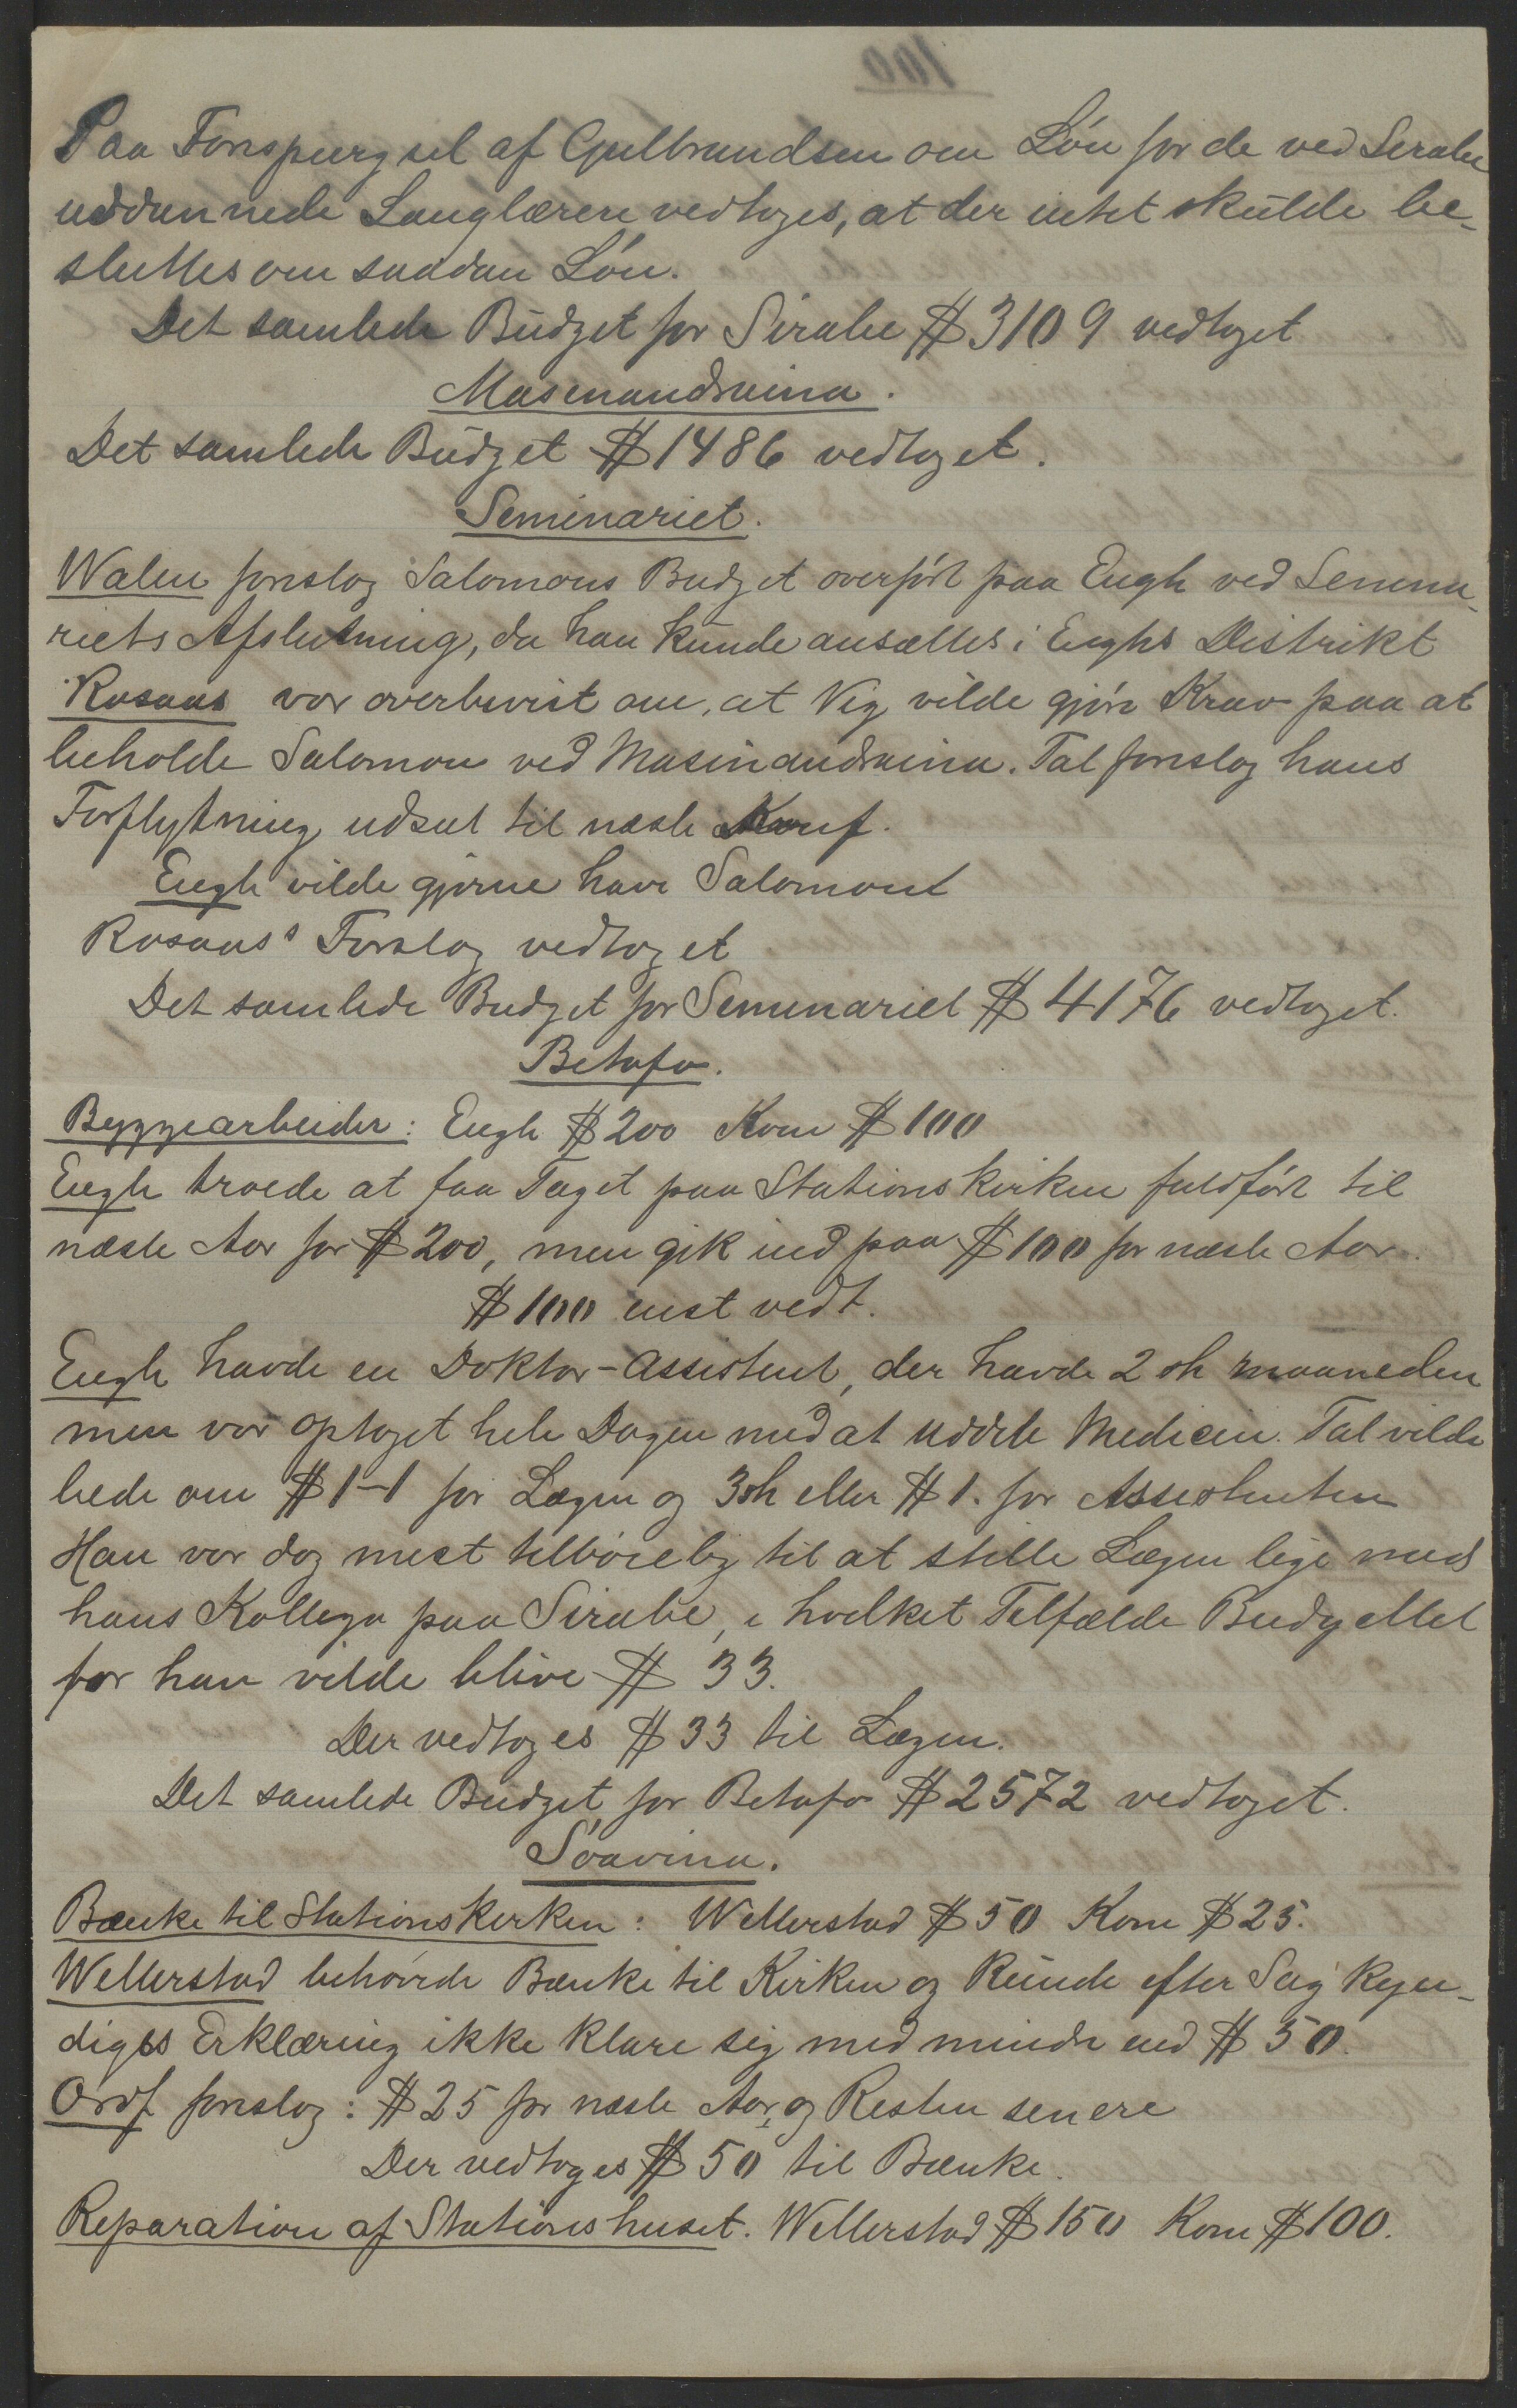 100
Paa Forespørgsel af Gulbrandsen om Løn for de ved Sirabe
uddannede Sanglærere vedtoges, at der intet skulde be-
sluttes om saadan Løn.
Det samlede Budget for Sirabe $ 3109 vedtoget
Masinandraina.
Det samlede Budget $ 1486 vedtoget.
Seminariet.
Walen foreslog Salomons Budget overført paa Engh ved Semina-
riets Afslutning, da han kunde ansættes i Enghs Distrikt
Rosaas var overbevist om, at Vig vilde gjøre Krav paa at
beholde Salomon ved Masinandraina. Tal foreslog hans
Forflytning udsat til næste Konf.
Engh vilde gjerne have Salomon
Rosaas's Forslag vedtoget
Det samlede Budget for Seminariet $ 4176 vedtoget.
Betafo.
Byggearbeider: Engh $ 200 Kom $ 100
Engh troede at faa Taget paa Stationskirken fuldført til
næste Aar for $ 200, men gik ind paa $ 100 for næste Aar.
$ 100 enst vedt.
Engh havde en Doktor-Assistent, der havde 2 sh maaneden
men var optaget hele Dagen med at uddele Medicin. Tal vilde
bede om $ 1-1 for Lægen og 3 sh eller $ 1. for Assistenten
Han var dog mest tilbøielig til at stille Lægen lige med
hans Kollega paa Sirabe, i hvilket Tilfælde Budgettet
for han vilde blive $ 33.
Der vedtoges $ 33 til Lægen.
Det samlede Budget for Betafo $ 2572 vedtoget.
Soavina.
Bænke til Stationskirken: Wetterstad $ 50 Kom $ 25.
Wetterstad behøvede Bænke til Kirken og kunde efter Sagkyn-
diges Erklæring ikke klare sig med mindre end $ 50.
Ordf foreslog: $ 25 for næste Aar, og Resten senere
Der vedtoges $ 50 til Bænke.
Reparation af Stationshuset. Wetterstad $ 150 Kom $ 100.